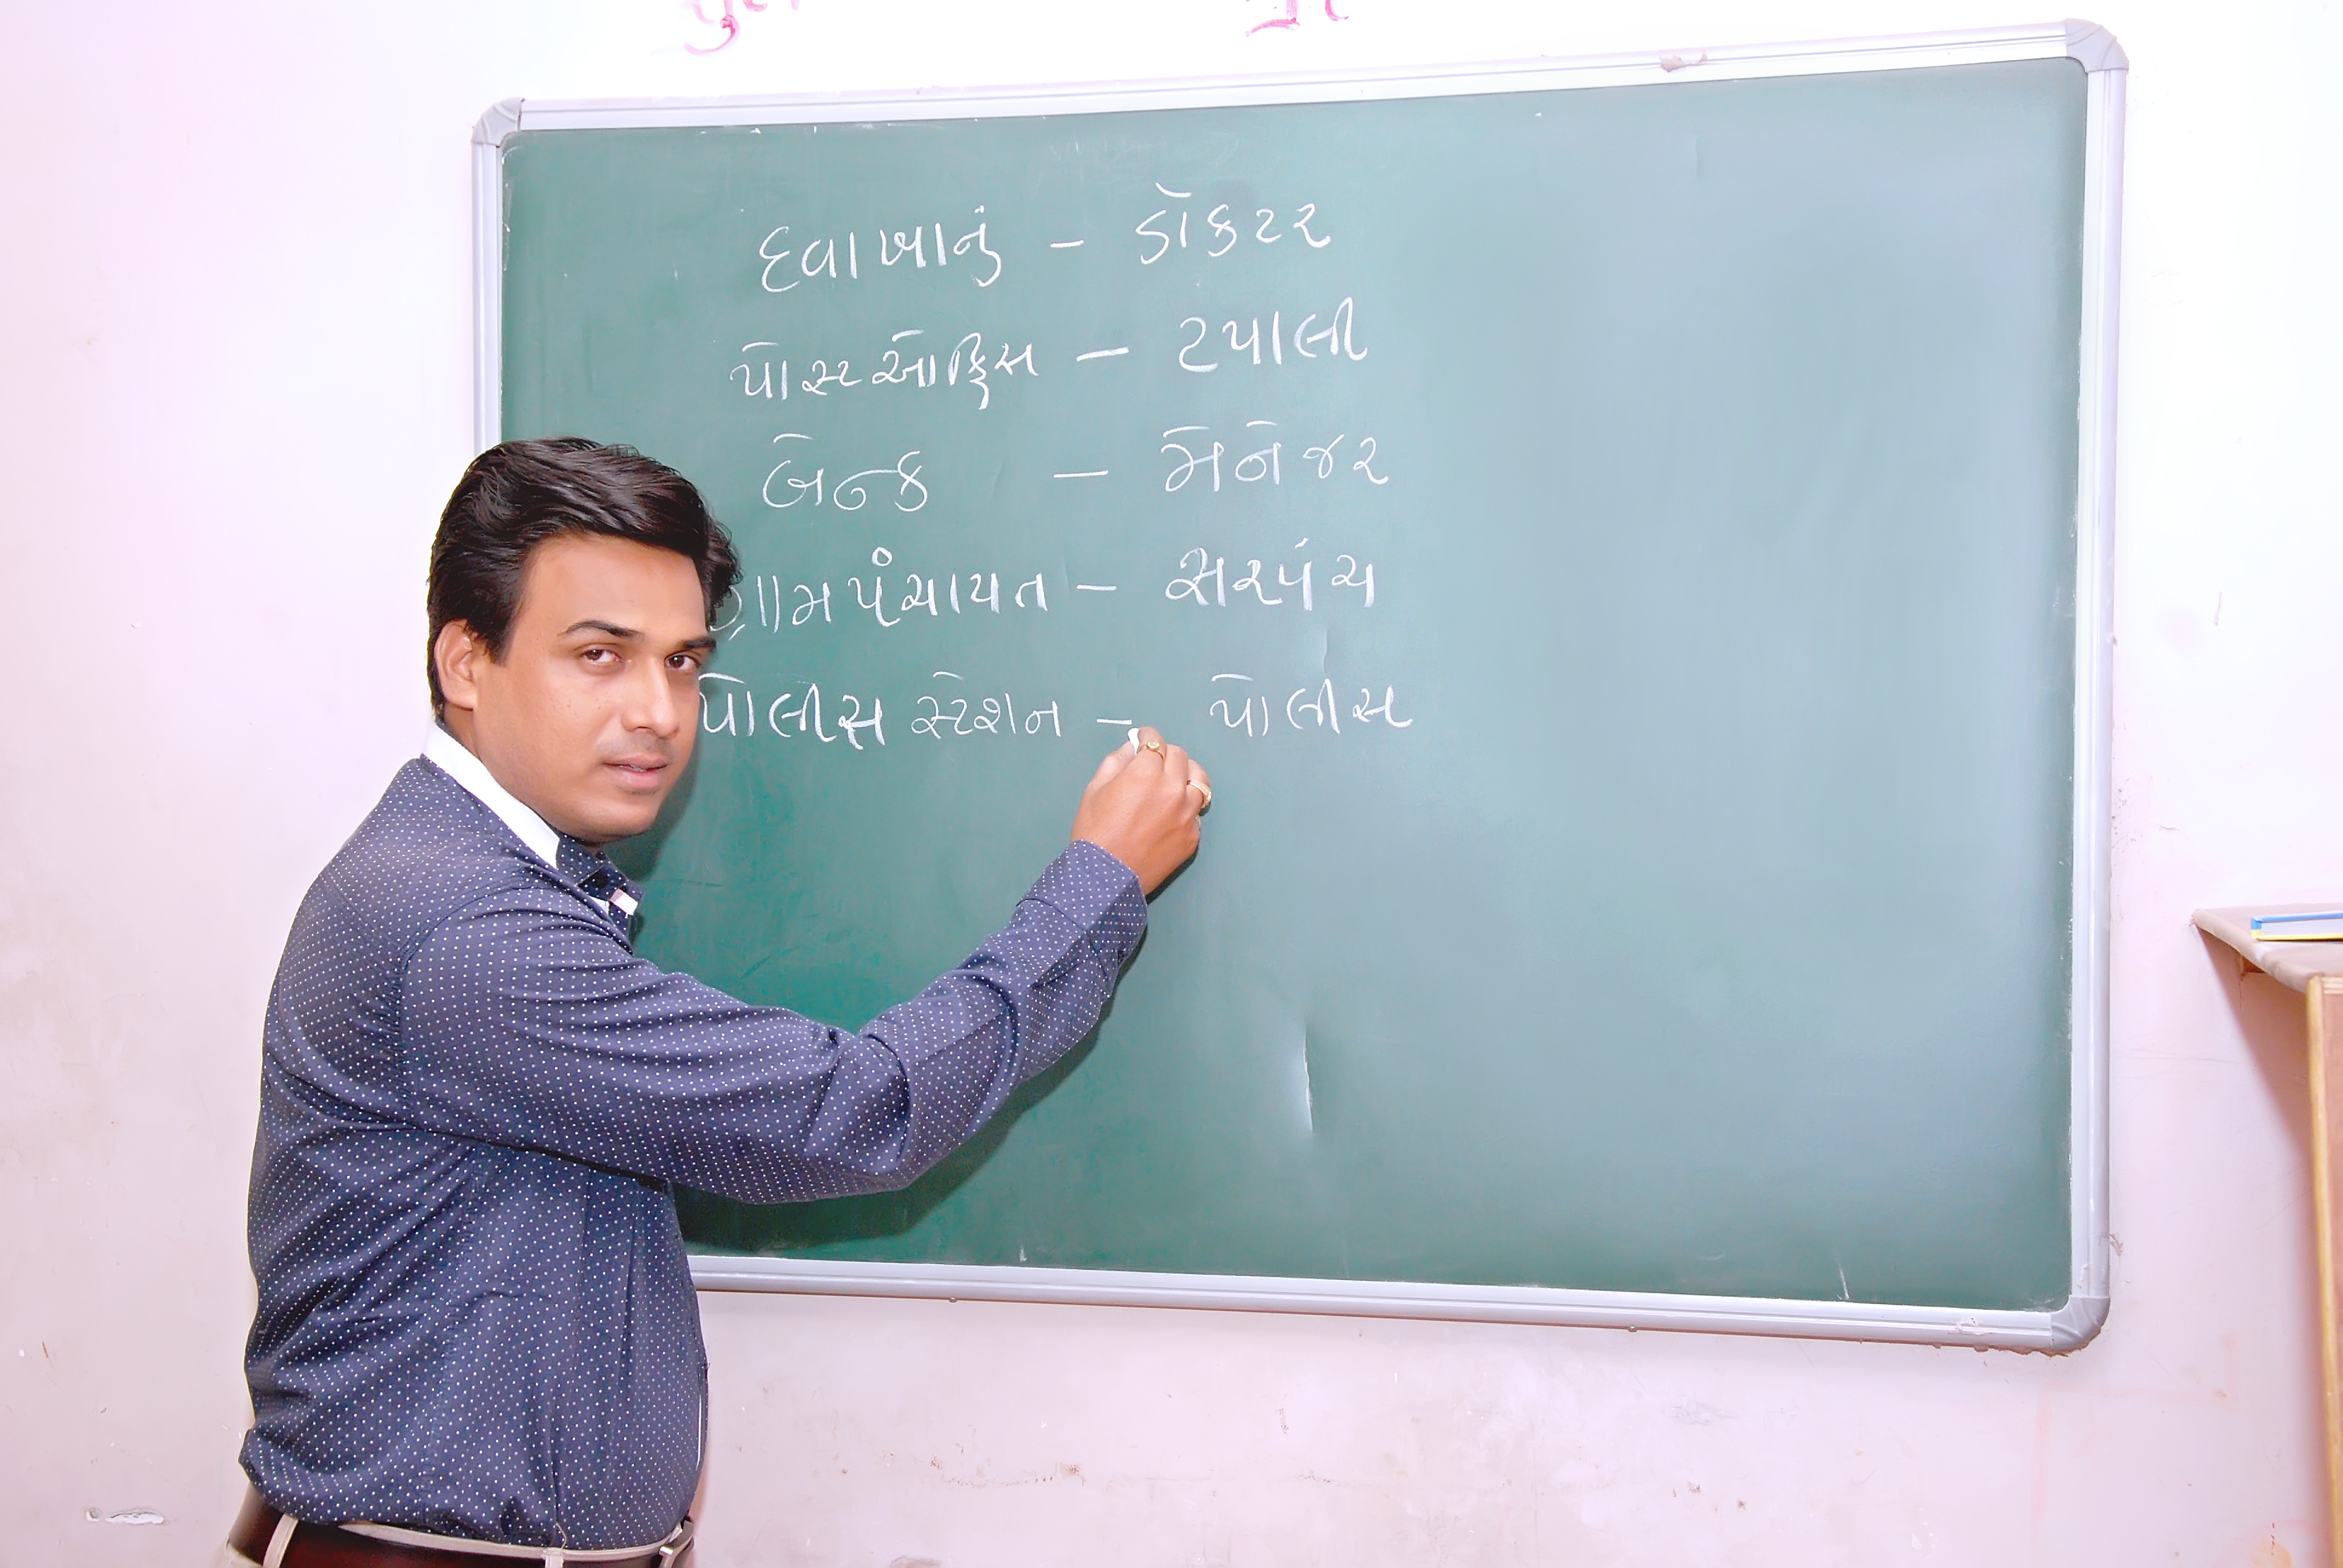 દવાખાનું - ડૉકટર
પોસ્ટ ઓફિસ - ટપાલી
બેન્ક - મેનેજર
ગ્રામ પંચાયત - સરપંચ
પોલીસ સ્ટેશન - પોલીસ